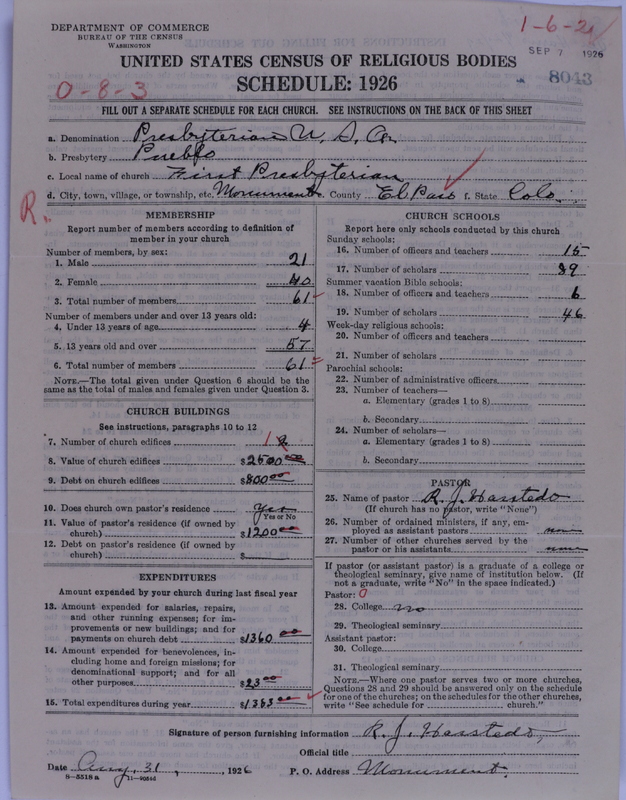 DEPARTMENT OF COMMERCE
BUREAU OF THE CENSUS
WASHINGTON
1-6-21
SEP 7 1926
8043
UNITED STATES CENSUS OF RELIGIOUS BODIES
SCHEDULE: 1926
0-8-3
FILL OUT A SEPARATE SCHEDULE FOR EACH CHURCH. SEE INSTRUCTIONS ON THE BACK OF THIS SHEET
a. Denomination Presbyterian U. S. A.
b. Presbytery Pueblo
c. Local name of church First Presbyterian
d. City, town, village, or township, etc. Monument e. County El Paso f. State Colo.
R.
MEMBERSHIP
Report number of members according to definition of
member in your church
Number of members, by sex:
1. Male 21
2. Female 40
3. Total number of members 61
Number of members under and over 13 years old:
4. Under 13 years of age 4
5. 13 years old and over 57
6. Total number of members 61
NOTE.—The total given under Question 6 should be the
same as the total of males and females given under Question 3.
CHURCH BUILDINGS
See instructions, paragraphs 10 to 12
7. Number of church edifices 1
8. Value of church edifices $2500.00
9. Debt on church edifices $800.00
10. Does church own pastor's residence Yes
Yes or No
11. Value of pastor's residence (if owned by
church) $1200.00
12. Debt on pastor's residence (if owned by
church) $
EXPENDITURES
Amount expended by your church during last fiscal year
13. Amount expended for salaries, repairs,
and other running expenses; for im-
provements or new buildings; and for
payments on church debt $1360.00
14. Amount expended for benevolences, in-
cluding home and foreign missions; for
denominational support; and for all
other purposes $23.00
15. Total expenditures during year $1383.00
CHURCH SCHOOLS
Report here only schools conducted by this church
Sunday schools:
16. Number of officers and teachers 15
17. Number of scholars 89
Summer vacation Bible schools:
18. Number of officers and teachers 6
19. Number of scholars 46
Week-day religious schools:
20. Number of officers and teachers
21. Number of scholars
Parochial schools:
22. Number of administrative officers
23. Number of teachers—
a. Elementary (grades 1 to 8)
b. Secondary
24. Number of scholars—
a. Elementary (grades 1 to 8)
b. Secondary
PASTOR
25. Name of pastor R. J. Harstedo
(If church has no pastor, write "None")
26. Number of ordained ministers, if any, em-
ployed as assistant pastors none
27. Number of other churches served by the
pastor or his assistants none
If pastor (or assistant pastor) is a graduate of a college or
theological seminary, give name of institution below. (If
not a graduate, write "No" in the space indicated.)
Pastor: 0
28. College no
29. Theological seminary
Assistant pastor:
30. College
31. Theological seminary
NOTE.—Where one pastor serves two or more churches,
Questions 28 and 29 should be answered only on the schedule
for one of the churches; on the schedules for the other churches,
write "See schedule for church."
Signature of person furnishing information R. J. Harstedo,
Official title
Date Aug, 31, 1926 P. O. Address Monument.
8-5518a